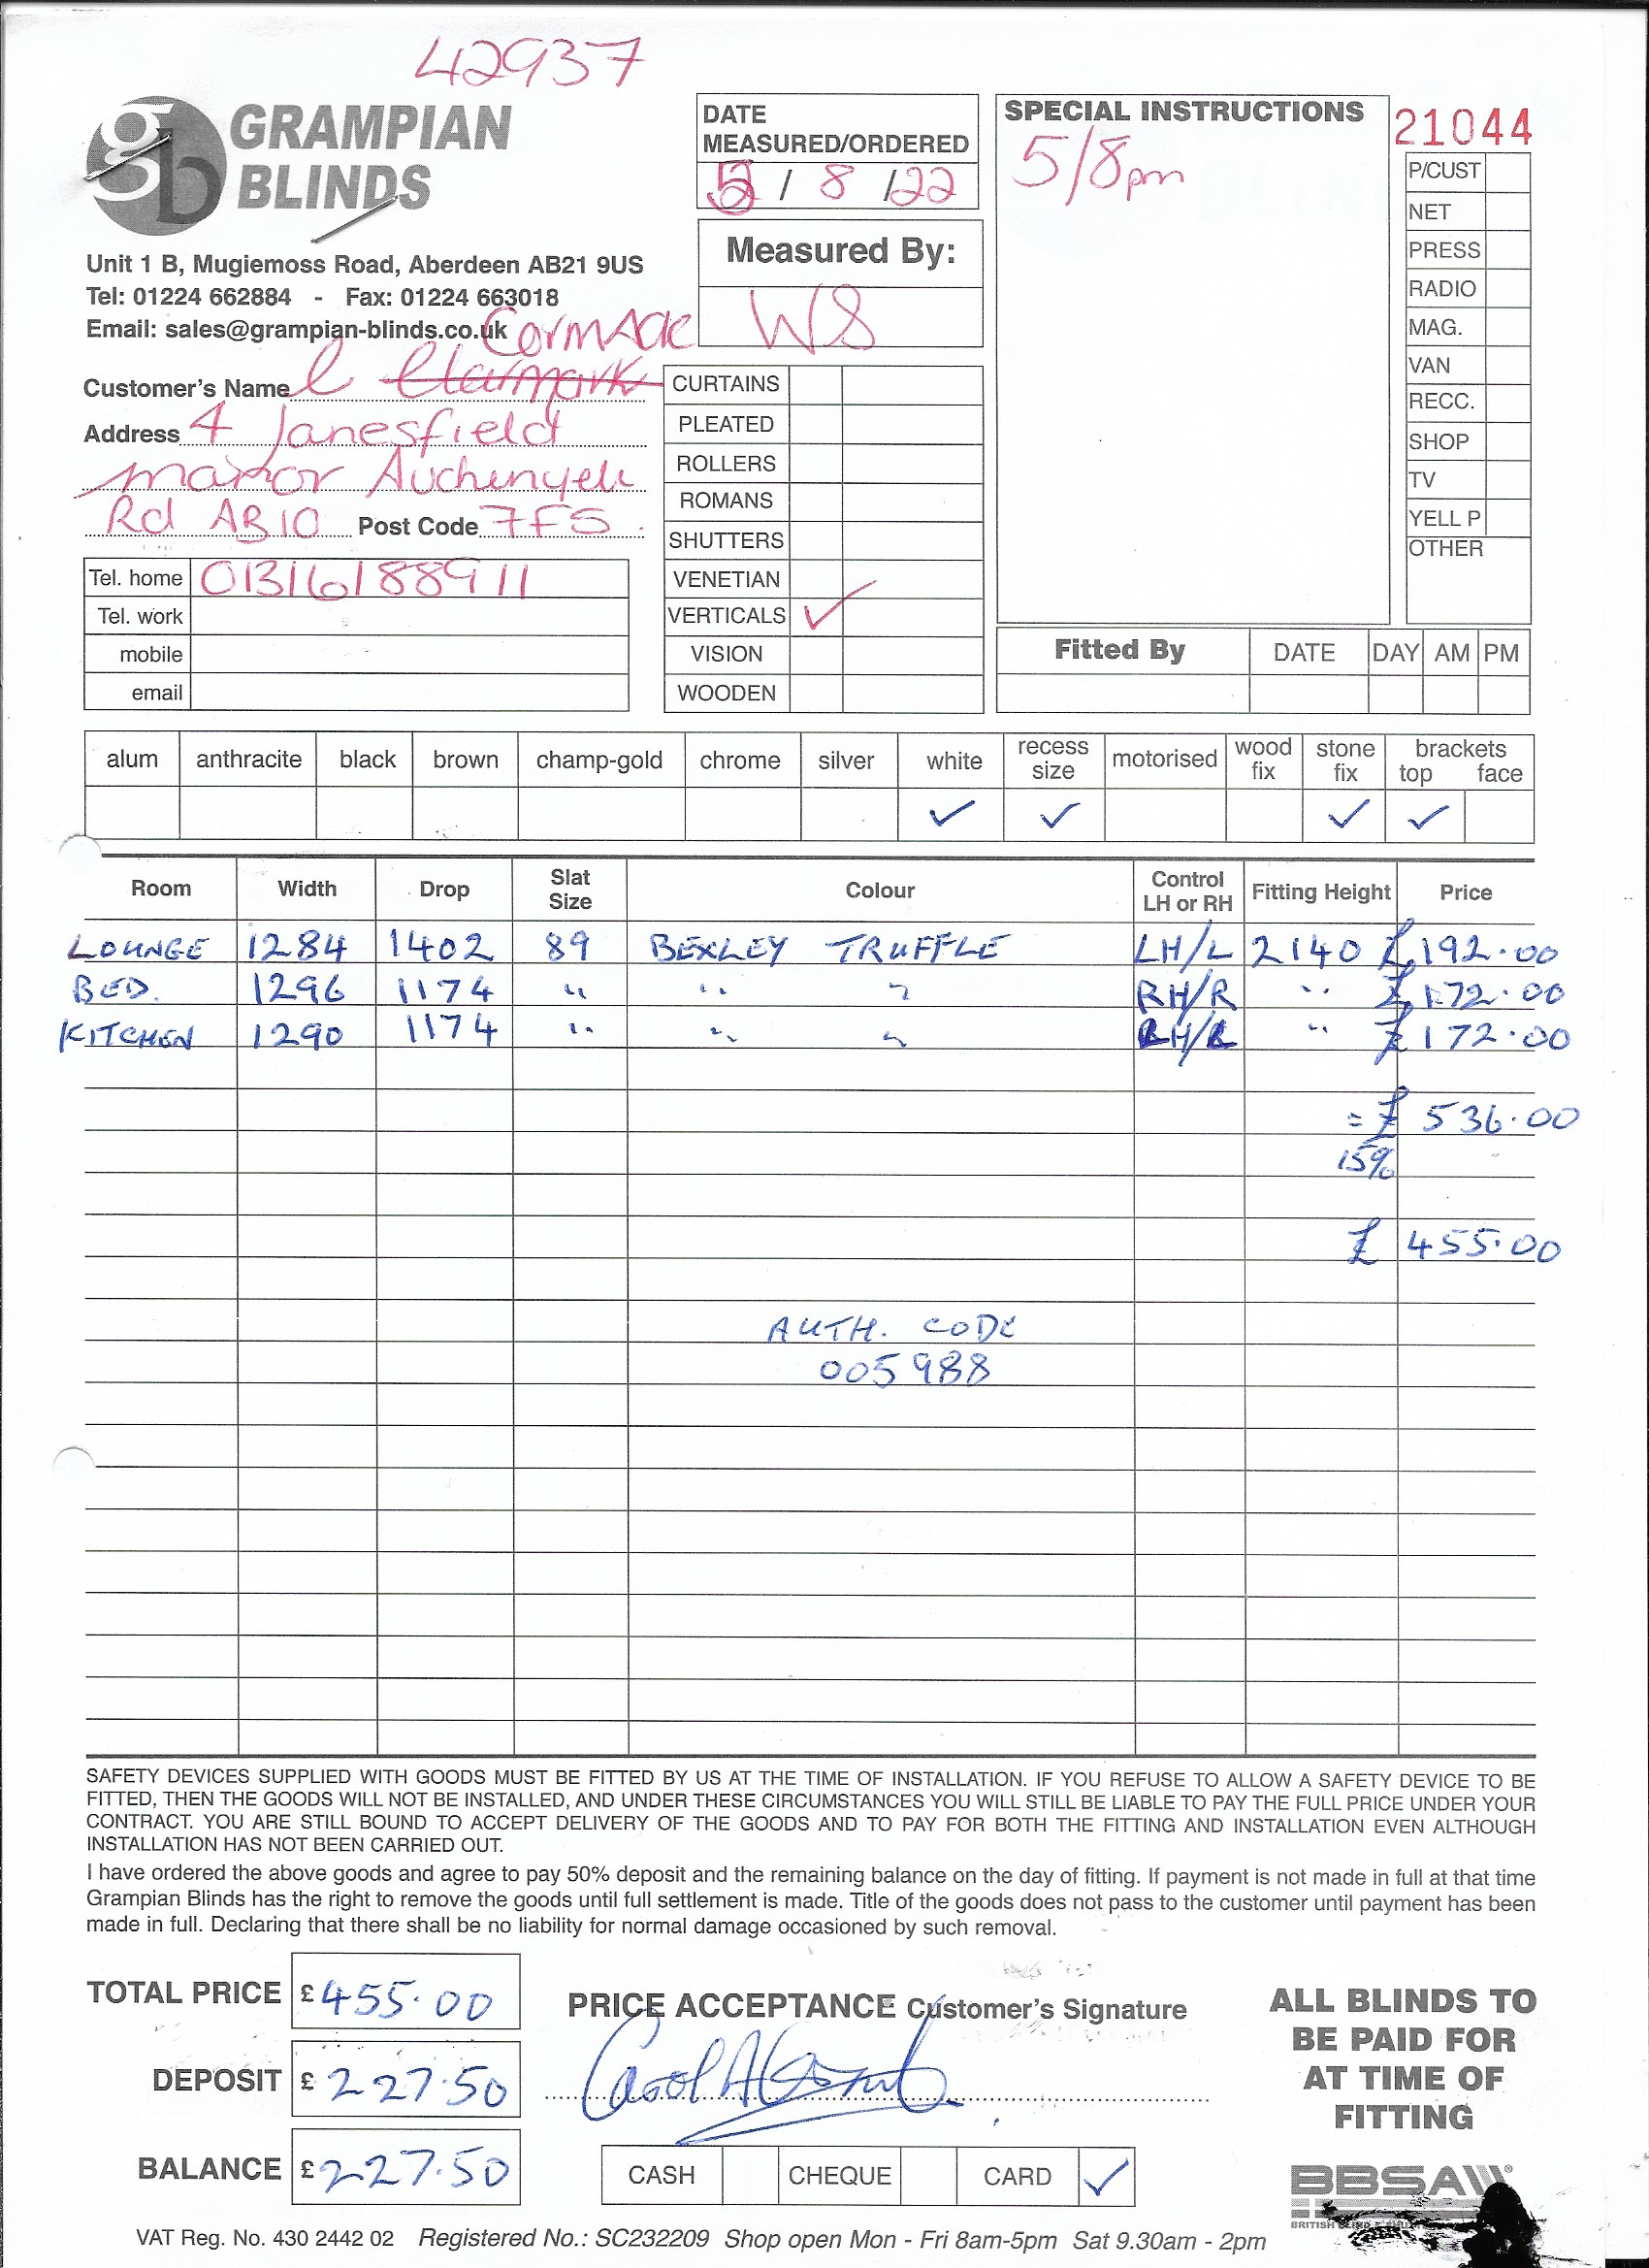 42937
GRAMPIAN
BLINDS
Unit 1 B, Mugiemoss Road, Aberdeen AB21 9US
Tel: 01224 662884 - Fax: 01224 663018
Email: sales@grampian-blinds.co.uk
DATE
MEASURED/ORDERED
5 / 8 /22
Measured By:
WS
SPECIAL INSTRUCTIONS
5/8pm
21044
P/CUST
NET
PRESS
RADIO
MAG.
VAN
RECC.
SHOP
TV
YELL P
OTHER
CorMACK
Customer's Name C
Address 4 Janesfield
manor Auchinyell
Rd AB10 Post Code 7FS
Tel. home 01316188911
Tel. work
mobile
email
CURTAINS
PLEATED
ROLLERS
ROMANS
SHUTTERS
VENETIAN
VERTICALS ✓
VISION
WOODEN
Fitted By DATE DAY AM PM
alum anthracite black brown champ-gold chrome silver white recess size motorised wood fix stone fix brackets top face
✓ ✓ ✓ ✓
Room Width Drop Slat Size Colour Control LH or RH Fitting Height Price
LOUNGE 1284 1402 89 BEXLEY TRUFFLE LH/L 2140 £192.00
BED. 1296 1174 " " " RH/R " £172.00
KITCHEN 1290 1174 " " " LH/L " £172.00
= £ 536.00
15%
£ 455.00
AUTH. CODE
005988
SAFETY DEVICES SUPPLIED WITH GOODS MUST BE FITTED BY US AT THE TIME OF INSTALLATION. IF YOU REFUSE TO ALLOW A SAFETY DEVICE TO BE
FITTED, THEN THE GOODS WILL NOT BE INSTALLED, AND UNDER THESE CIRCUMSTANCES YOU WILL STILL BE LIABLE TO PAY THE FULL PRICE UNDER YOUR
CONTRACT. YOU ARE STILL BOUND TO ACCEPT DELIVERY OF THE GOODS AND TO PAY FOR BOTH THE FITTING AND INSTALLATION EVEN ALTHOUGH
INSTALLATION HAS NOT BEEN CARRIED OUT.
I have ordered the above goods and agree to pay 50% deposit and the remaining balance on the day of fitting. If payment is not made in full at that time
Grampian Blinds has the right to remove the goods until full settlement is made. Title of the goods does not pass to the customer until payment has been
made in full. Declaring that there shall be no liability for normal damage occasioned by such removal.
TOTAL PRICE £455.00
DEPOSIT £227.50
BALANCE £227.50
PRICE ACCEPTANCE Customer's Signature
CASH CHEQUE CARD ✓
ALL BLINDS TO
BE PAID FOR
AT TIME OF
FITTING
BBSA
VAT Reg. No. 430 2442 02 Registered No.: SC232209 Shop open Mon - Fri 8am-5pm Sat 9.30am - 2pm